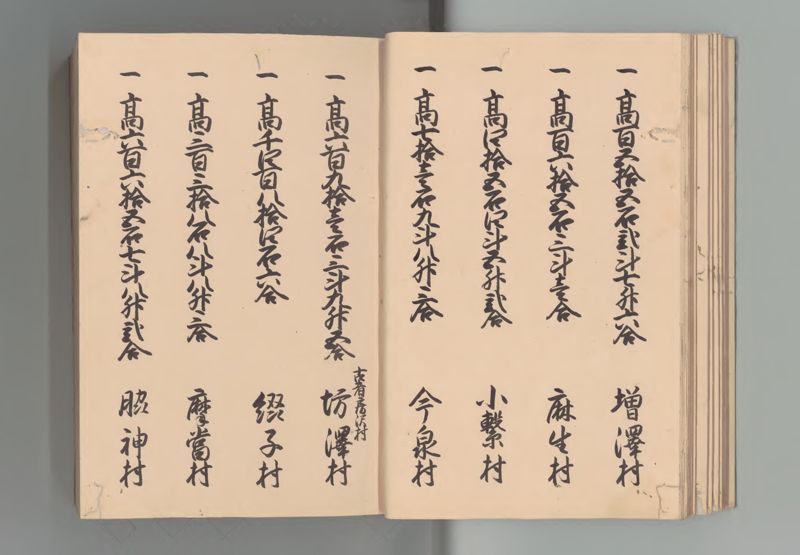 一高百五拾五石弐斗七升六合 増澤村
一高百六拾五石三斗壱合 麻生村
一高四拾五石四斗五升弐合 小繋村
一高七拾壱石九斗八升三合 今泉村
一高六百九拾壱石三斗九升五合 坊澤村
一高千四百八拾四石六合 綴子村
一高三百三拾八石八斗八升三合 摩當村
一高六百六拾五石七斗八升弐合 脇神村